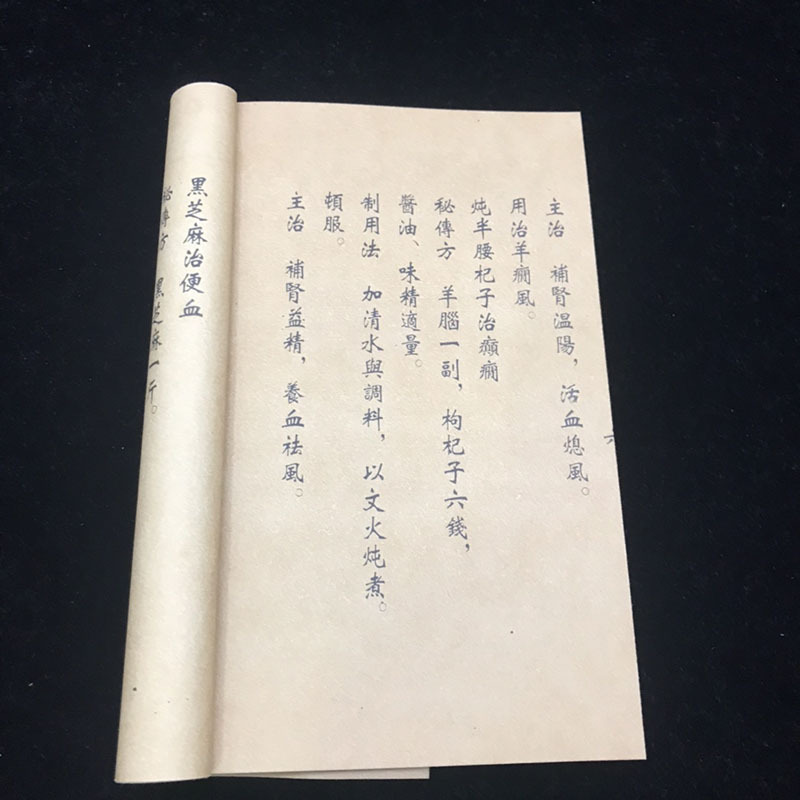 主治　補腎温陽，活血熄風。
用治羊癇風。
炖羊腰杞子治癲癇
秘傳方　羊腦一副，枸杞子六錢，
醬油、味精適量。
制用法　加清水與調料，以文火炖煮。
頓服。
主治　補腎益精，養血祛風。
黑芝麻治便血
秘傳方　黑芝麻一斤。
六